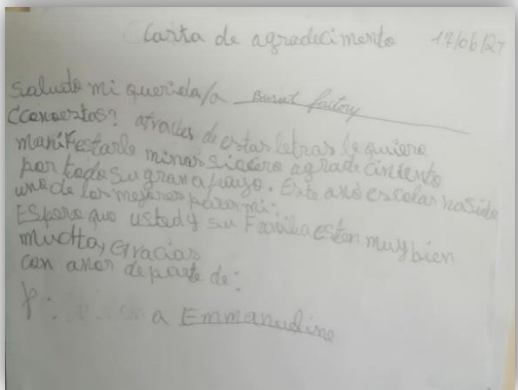 Carta de agradecimento 17/06/2
saludo mi querida/a Burnt factory
Como estas? atravas de estas letras le quiero
manifestarle mi mas sicero agradecimiento
por todo su gran apayo. Este ano escolar ha sido
uno de los mejores para mi.
Espero que usted y su Familia esten muy bien
Muchas Gracias
con amor de parte de:
a Emmanueline